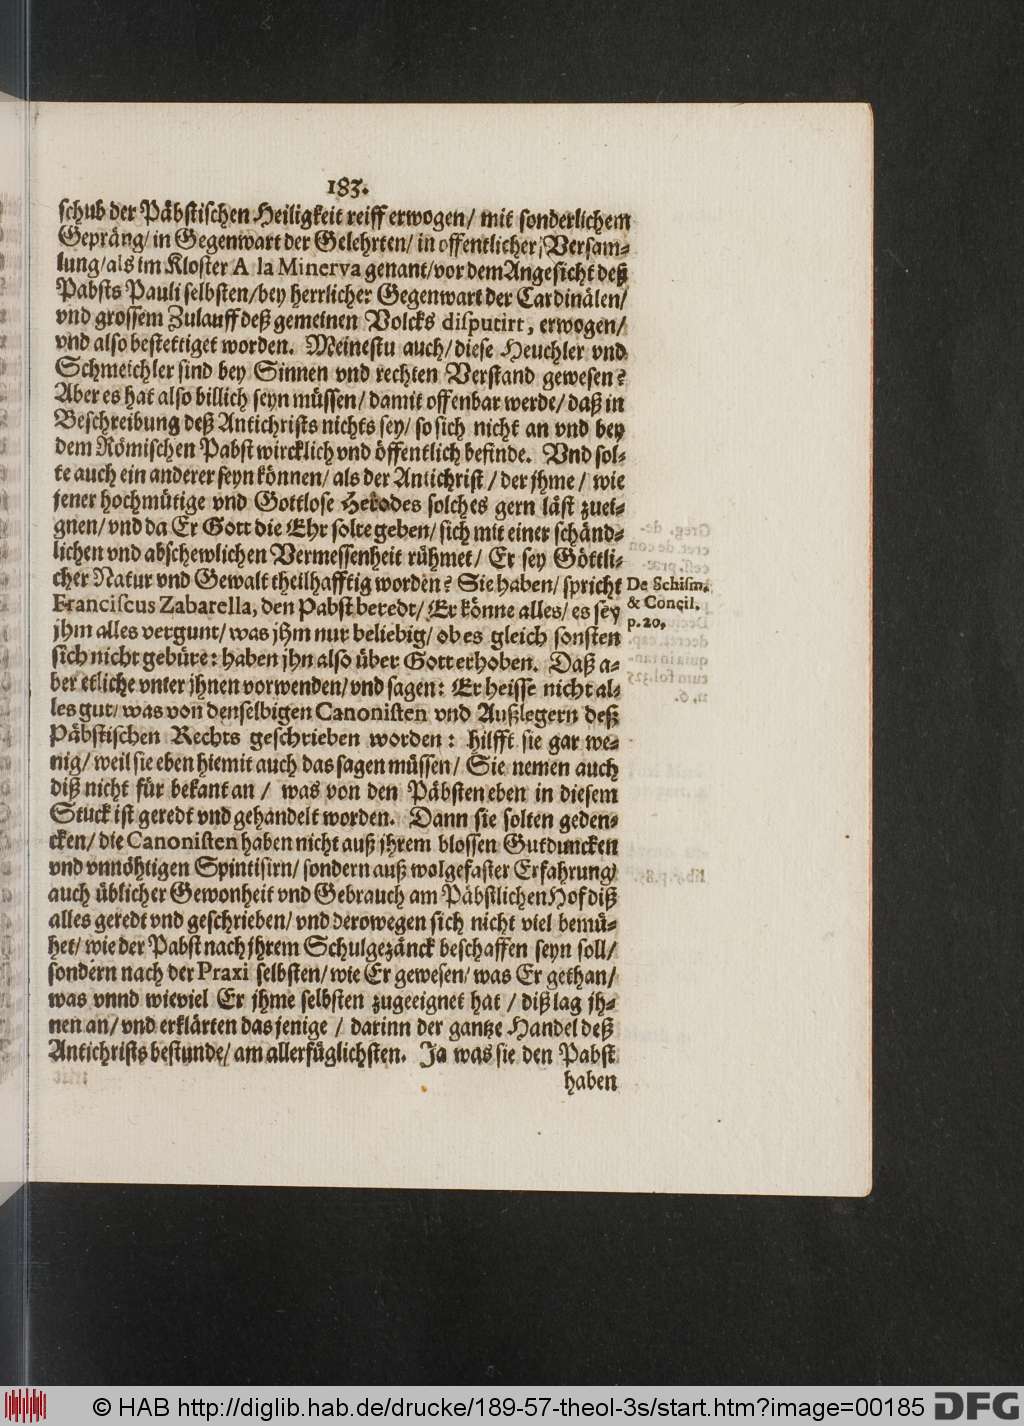 183.
schub der Päbstischen Heiligkeit reiff erwogen/ mit sonderlichem
Gepräng/ in Gegenwart der Gelehrten/ in offentlicher Versam-
lung/ als im Kloster A la Minerva genant/ vor dem Angesicht deß
Pabsts Pauli selbsten/ bey herrlicher Gegenwart der Cardinälen/
vnd grossem Zulauff deß gemeinen Volcks disputirt, erwogen/
vnd also bestettiget worden. Meinestu auch/ diese Heuchler vnd
Schmeichler sind bey Sinnen vnd rechten Verstand gewesen?
Aber es hat also billich seyn müssen/ damit offenbar werde/ daß in
Beschreibung deß Antichrists nichts sey/ so sich nicht an vnd bey
dem Römischen Pabst wircklich vnd öffentlich befinde. Vnd sol-
te auch ein anderer seyn können/ als der Antichrist/ der jhme/ wie
jener hochmütige vnd Gottlose Herodes solches gern läst zuei-
gnen/ vnd da Er Gott die Ehr solte geben/ sich mit einer schänd-
lichen vnd abschewlichen Vermessenheit rühmet/ Er sey Göttli-
cher Natur vnd Gewalt theilhafftig worden? Sie haben/ spricht
Franciscus Zabarella, den Pabst beredt/ Er könne alles/ es sey
jhm alles vergunt/ was jhm nur beliebig/ ob es gleich sonsten
sich nicht gebüre: haben jhn also über Gott erhoben. Daß a-
ber etliche vnter jhnen vorwenden/ vnd sagen: Er heisse nicht al-
les gut/ was von denselbigen Canonisten vnd Außlegern deß
Päbstischen Rechts geschrieben worden: hilfft sie gar we-
nig/ weil sie eben hiemit auch das sagen müssen/ Sie nemen auch
diß nicht für bekant an/ was von den Päbsten eben in diesem
Stuck ist geredt vnd gehandelt worden. Dann sie solten geden-
cken/ die Canonisten haben nicht auß jhrem blossen Gutduncken
vnd vnnöhtigen Spintisirn/ sondern auß wolgefaster Erfahrung/
auch üblicher Gewonheit vnd Gebrauch am Päbstlichen Hof diß
alles geredt vnd geschrieben/ vnd derowegen sich nicht viel bemü-
het/ wie der Pabst nach jhrem Schulgezänck beschaffen seyn soll/
sondern nach der Praxi selbsten/ wie Er gewesen/ was Er gethan/
was vnnd wieviel Er jhme selbsten zugeeignet hat/ diß lag jh-
nen an/ vnd erklärten dasjenige/ darinn der gantze Handel deß
Antichrists bestunde/ am allerfüglichsten. Ja was sie den Pabst
haben
De Schism.
& Conçil.
p. 20,
© HAB http://diglib.hab.de/drucke/189-57-theol-3s/start.htm?image=00185
DFG